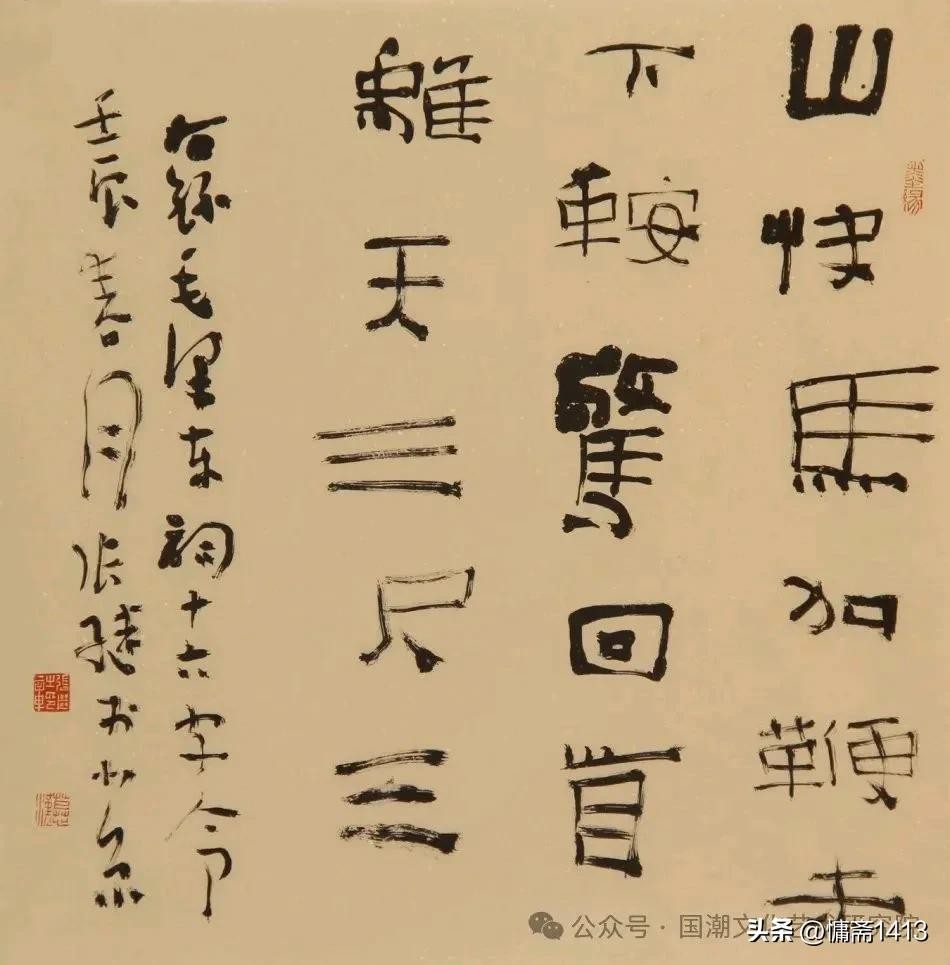 山快馬加鞭未
下鞍驚回首
離天三尺三
右錄毛澤東詞十六字令
壬辰月张继书
公众号 · 国潮文化艺术研究院
头条 @慵斋1413